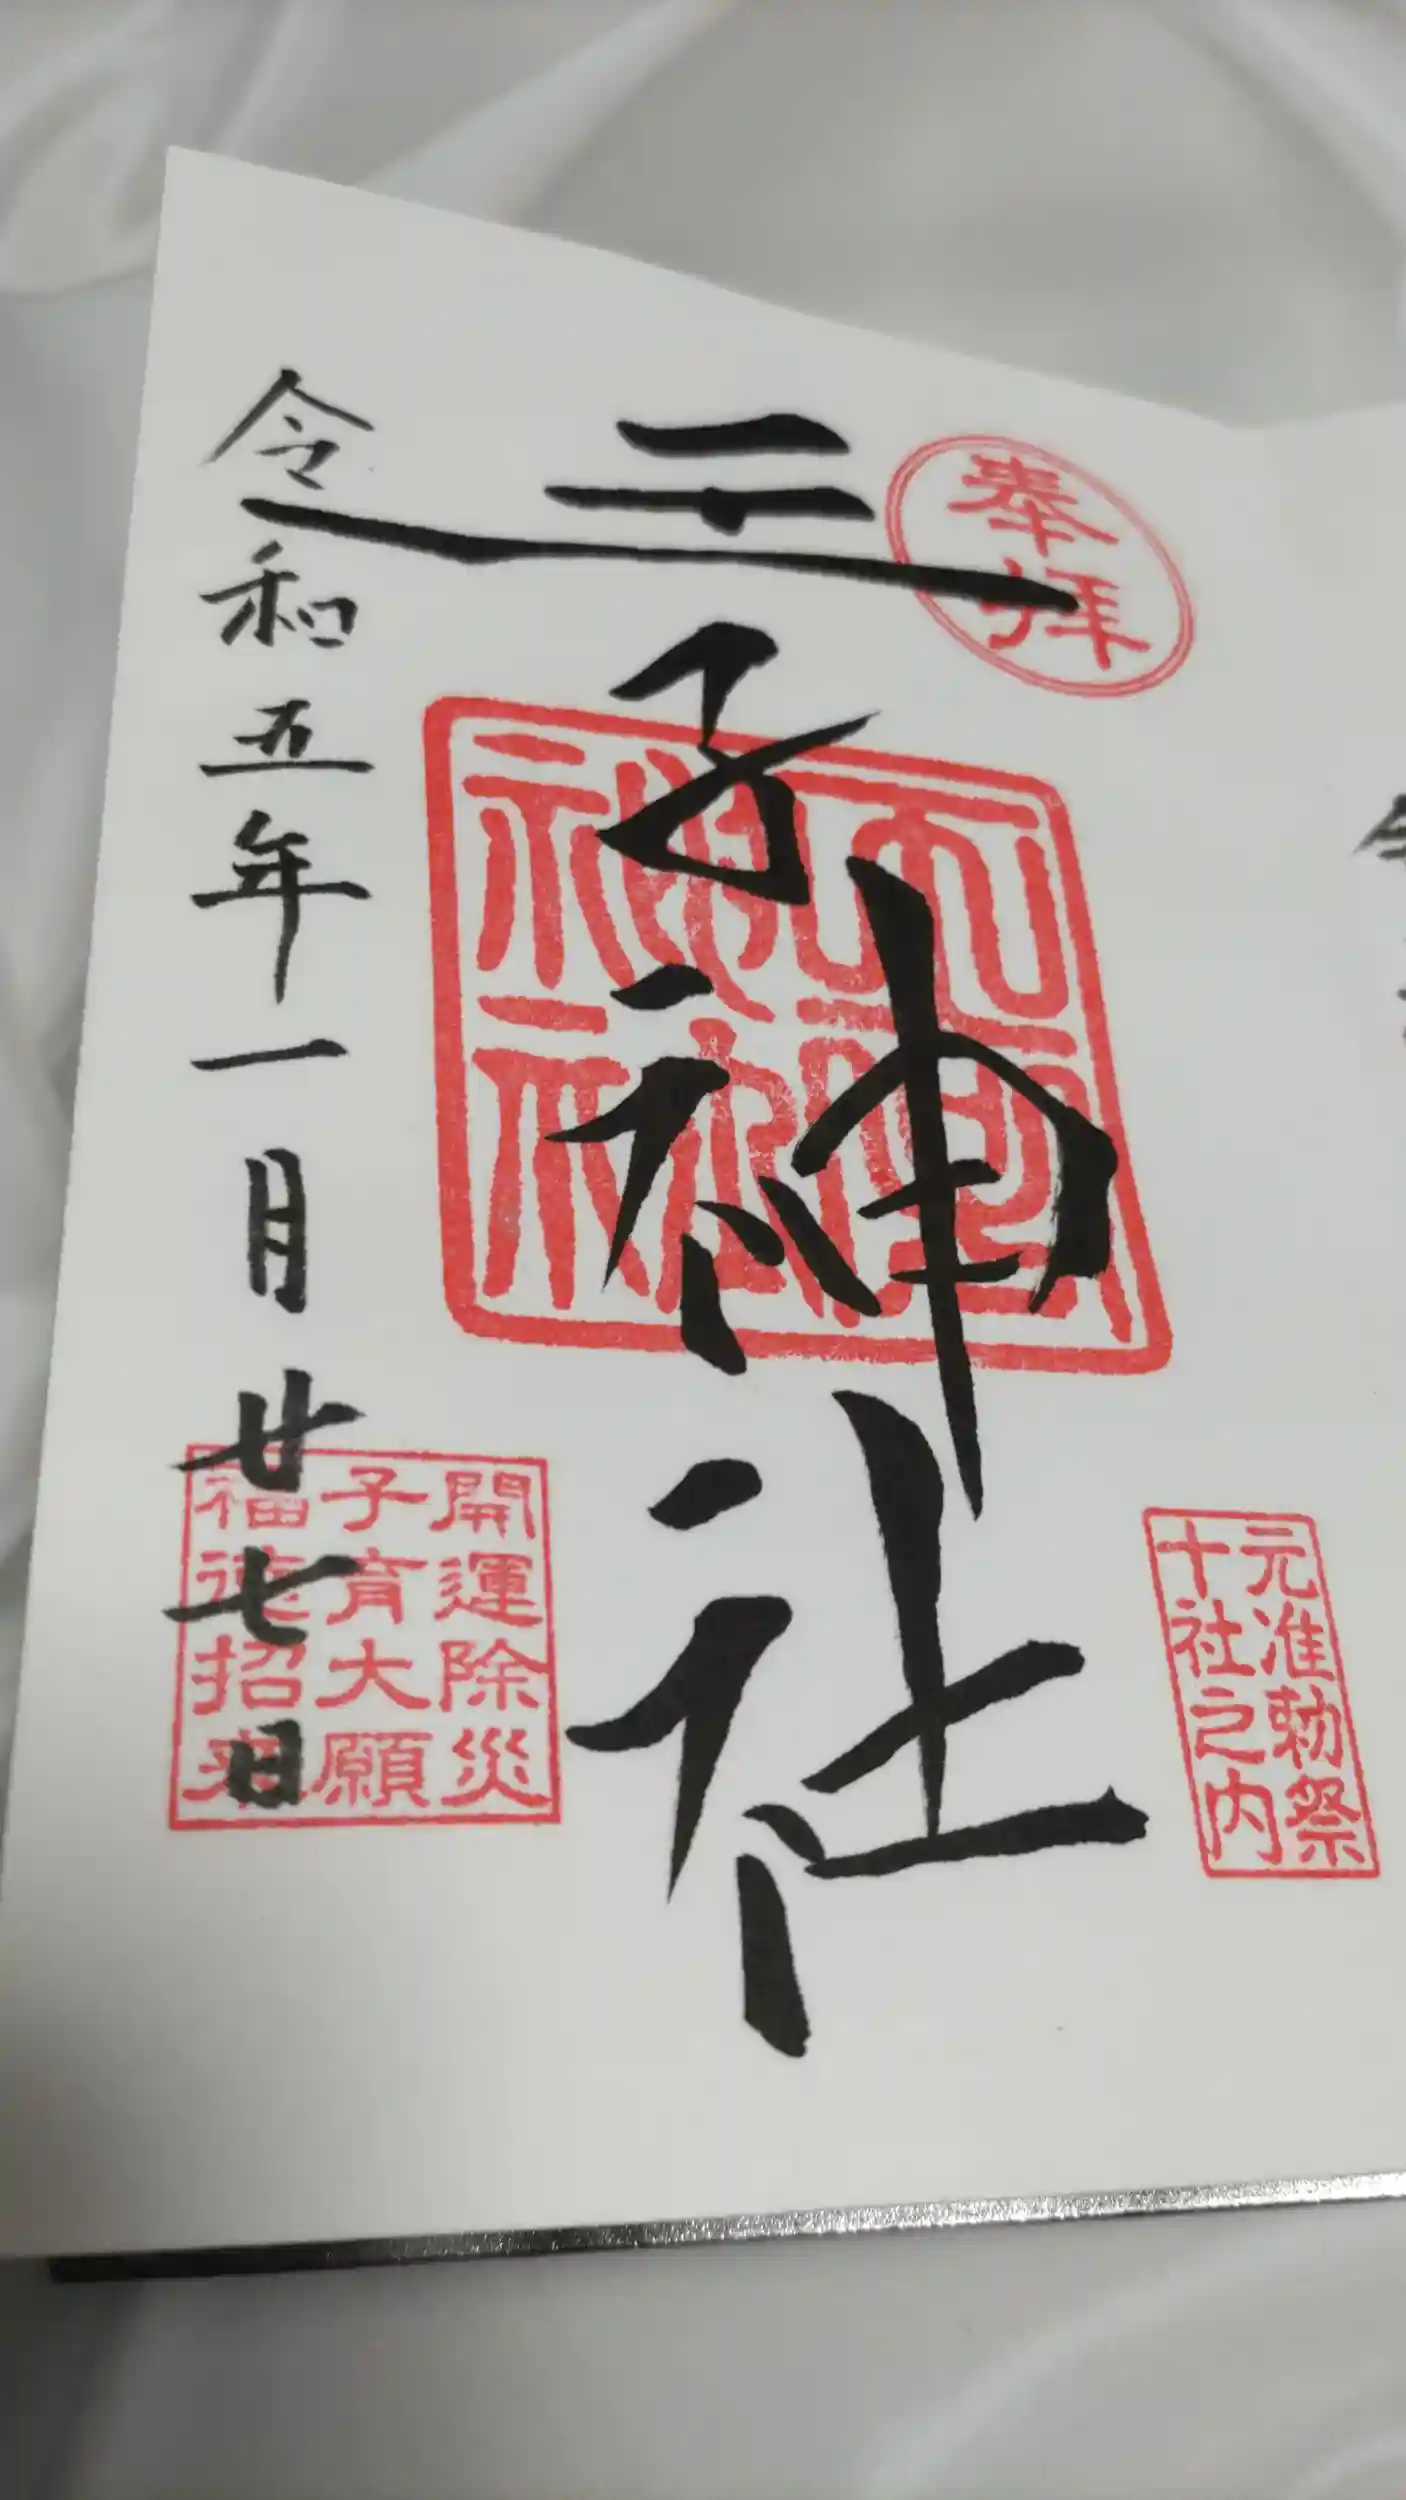 奉拝
元准勅祭
十社之内
王子神社
開運除災
子育大願
福徳招来
令和五年一月廿七日